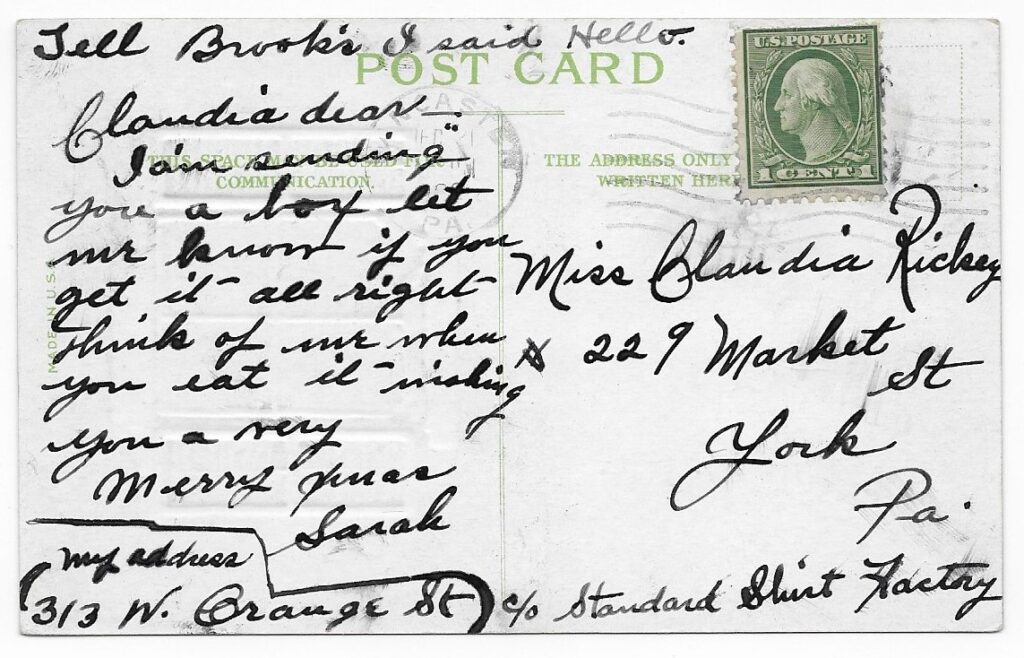 Tell Brook's I said Hello.
POST CARD
U.S. POSTAGE
1 CENT 1
Claudia dear—
I'am sending
THE ADDRESS ONLY
WRITTEN HER
COMMUNICATION.
you a box let
me know if you
get it all right
think of me when
you eat it wishing
you a very
Merry Xmas
Sarah
MADE IN U.S.
Miss Claudia Rickey
229 Market
St
York
Pa.
c/o Standard Shirt Factory
my address
(313 W. Orange St)
PA